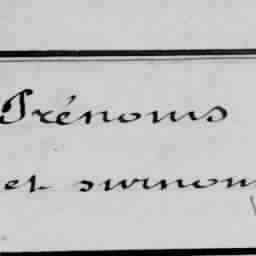 Prénoms
et surnom